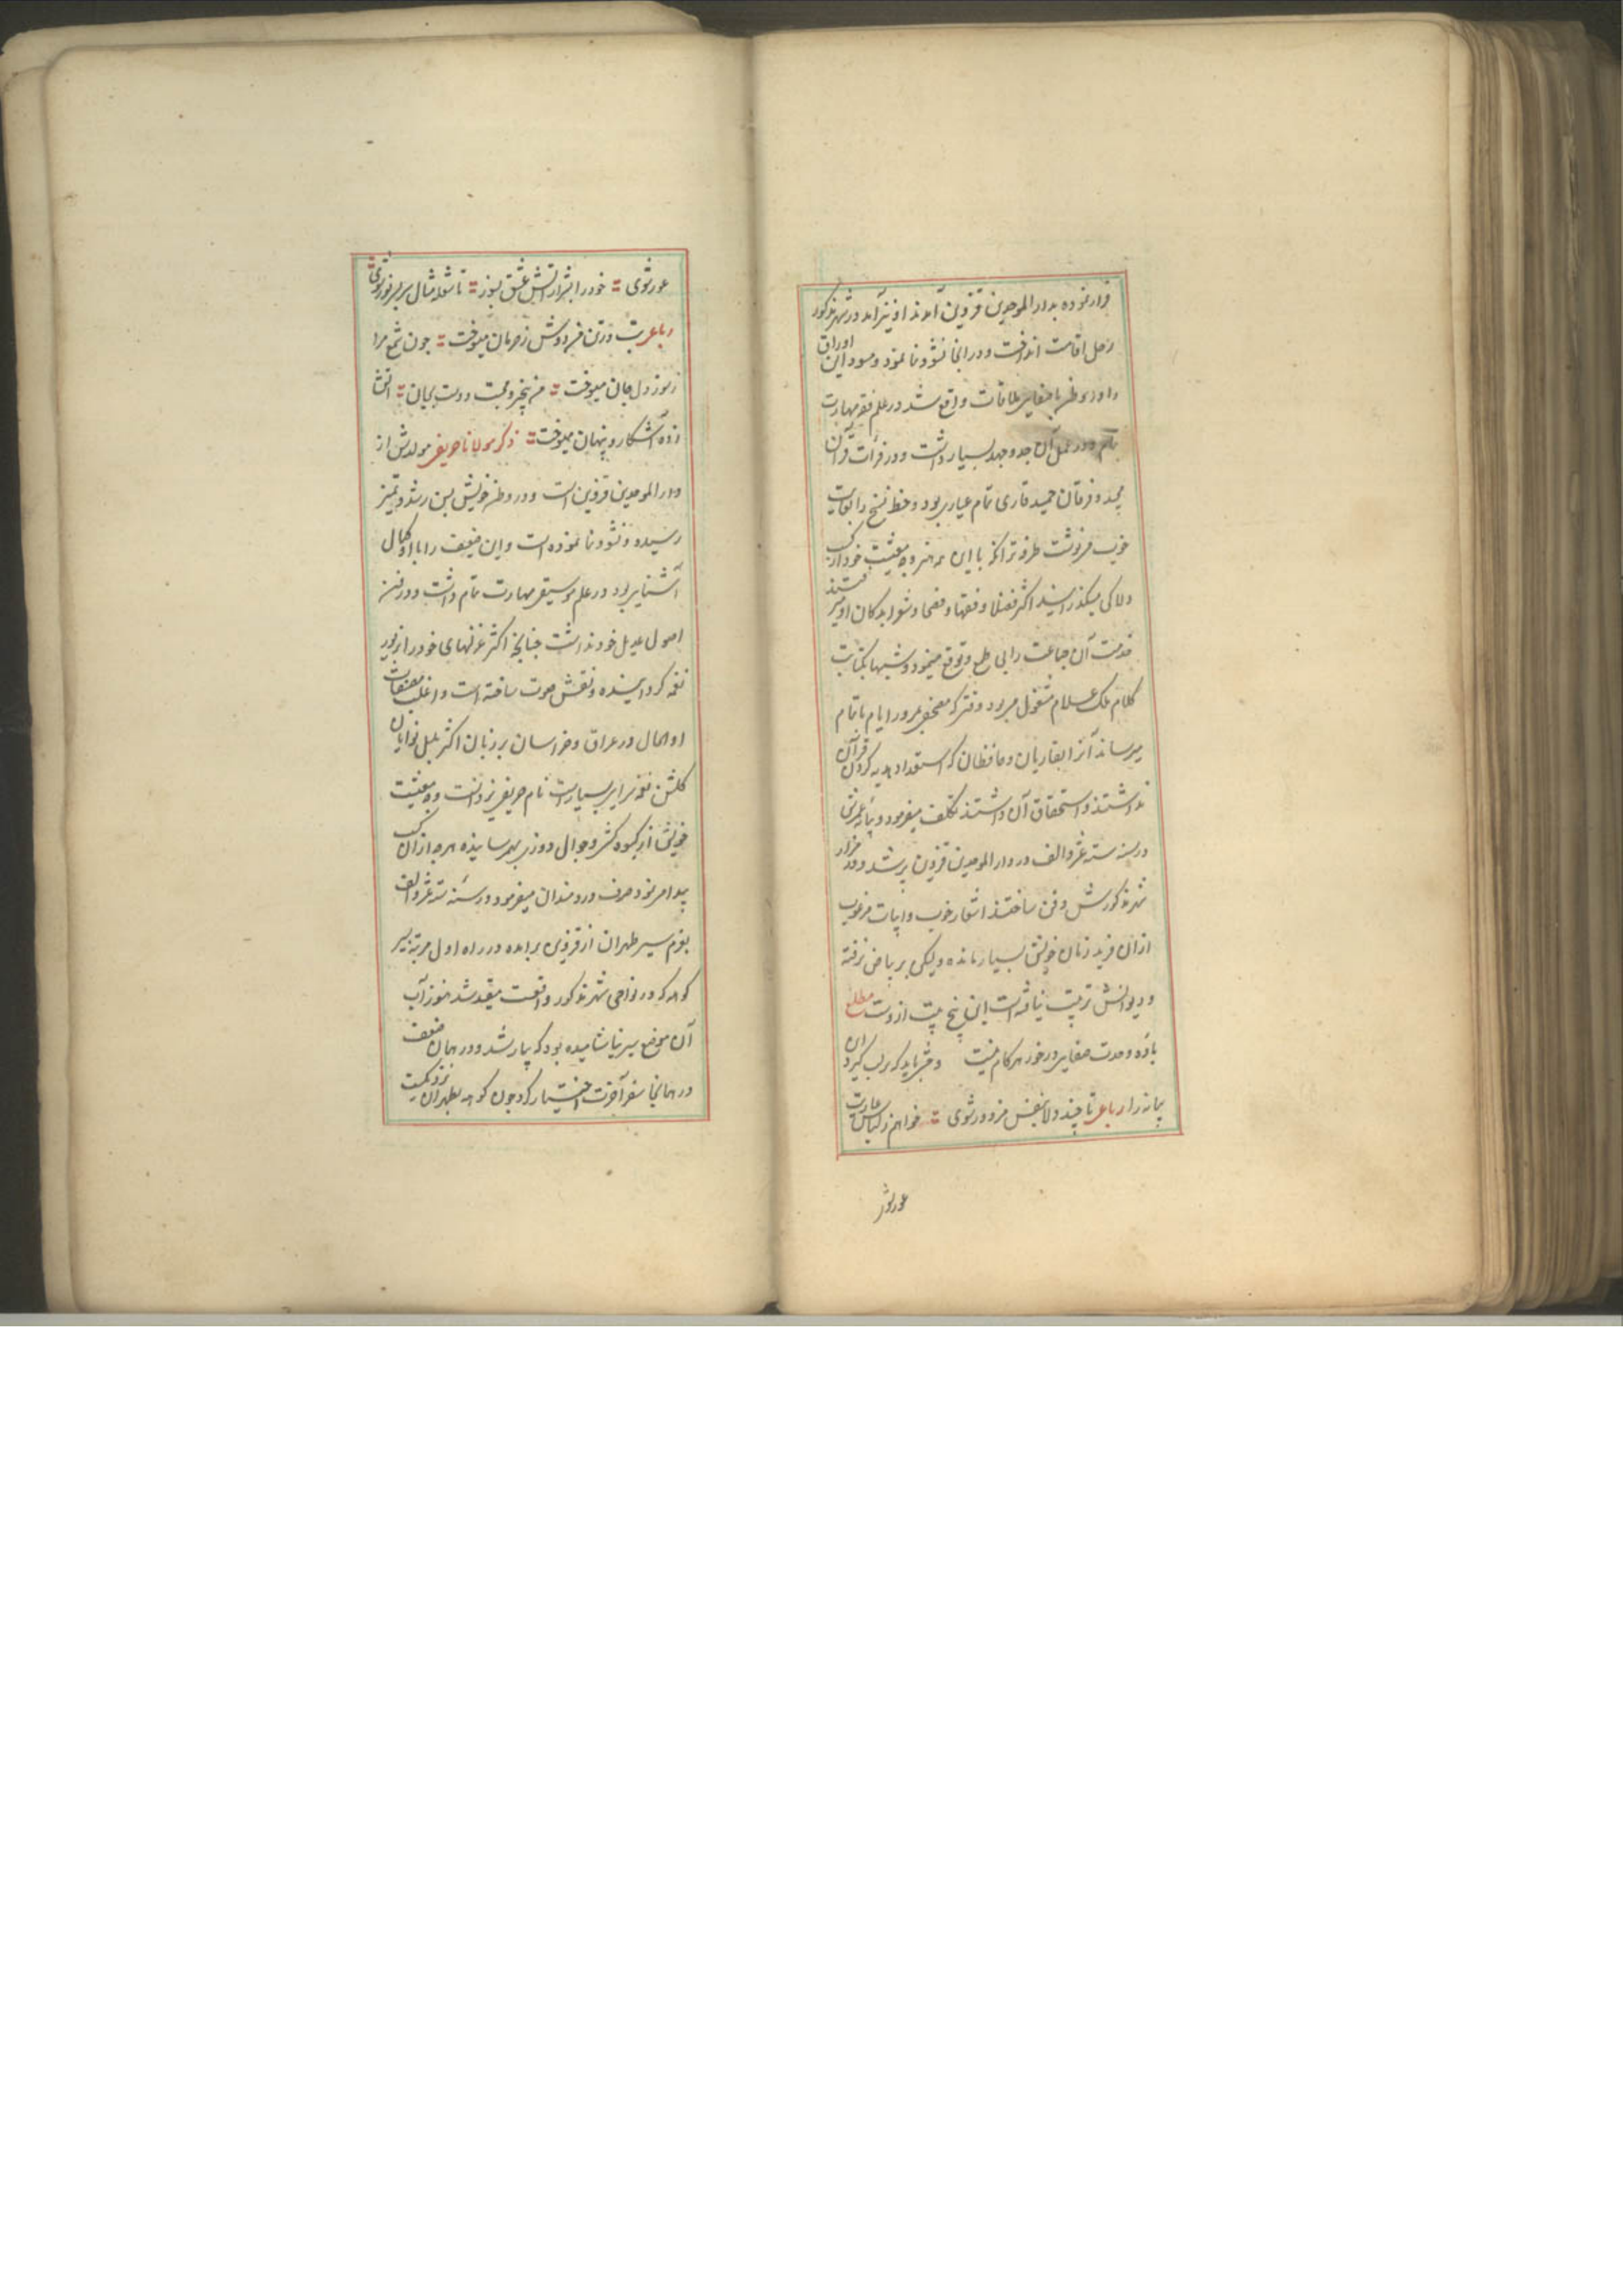 قرار نموده بدار الموحدین قزوین آمدند او نیز آمد در شهر مذکور
رحل اقامت انداخت و در انجا نشو و نما نمود و مسود این اوراق
را در وطن با صفایی ملاقات واقع شد در علم فقه مهارت
تام و در عمل آن جد و جهد بسیار داشت و در قرأت قرآن
مجید و فرقان حمید قاری تمام عیاری بود و خط نسخ را بغایت
خوب می‌نوشت طرفه تر آنکه با این همه هنر وجه معیشت خود از کسب
دلاکی میگذرانید اکثر فضلا و فقها و فصحا و شعرا بدکان او میرفتند
خدمت آن جماعت را بی طمع و توقع مینمود و شبها بکتابت
کلام ملک علام مشغول میبود وقتی که مصحفی بمرور ایام باتمام
میرساند آنرا بقاریان و حافظان که استعداد هدیه کردن قرآن
نداشتند و استحقاق آن داشتند تکلف میفرمود و پیمانه عمرش
در سنه سته عشر و الف در دار الموحدین قزوین پر شد و در مزار
شهر مذکورش دفن ساختند اشعار خوب و ابیات مرغوب
ازان فرید زمان خویش بسیار مانده ولیکن بر بیاض نرفته
و دیوانش ترتیب نیافته است این پنج بیت ازوست مطلع
باده وحدت صفایی در خور هر کام نیست وحشی باید که بر لب گیرد این
پیمانه را رباعی تا چند دلا بنفس مزدور شوی خواهم ز لباس عاریت
عور شو
عور شوی خود را بشرار آتش عشق بسوز تا شعله مثال سر بسر نور شوی
رباعی تب در تن من دوش ز حرمان میسوخت چون شمع مرا
ز سوز دل جان میسوخت من بیخبر و محبت دوست بجان آتش
زده آشکار و پنهان میسوخت ذکر مولانا حریفی مولدش از
دار الموحدین قزوین است و در وطن خویش بسن رشد و تمیز
رسیده و نشو و نما نموده است و این ضعیف را با او کمال
آشنایی بود در علم موسیقی مهارت تمام داشت و در فن
اصول عدیل خود نداشت چنانچه اکثر غزلهای خود را از زیور
نغمه گردانیده و نقش صوت ساخته است و اغلب مصنفات
او الحال در عراق و خراسان بر زبان اکثر بلبل نوایان
گلشن نغمه سرایی بسیارست نام حریفی نزد است وجه معیشت
خویش از کسب کفش و جوال دوزی بهمرسانیده هرچه از آن کسب
پیدا مینمود صرف دردمندان میفرمود در سنه سته عشر و الف
بعزم سیر طهران از قزوین برآمده در راه اول مرتبه بسیر
کوهی که در نواحی شهر مذکور واقعست مقید شد هنوز آب
آن موضع سیر نیاشامیده بود که بیمار شد و در همان ضعف
در همانجا سفر آخرت اختیار کرد چون کوه بطهران نزدیکست